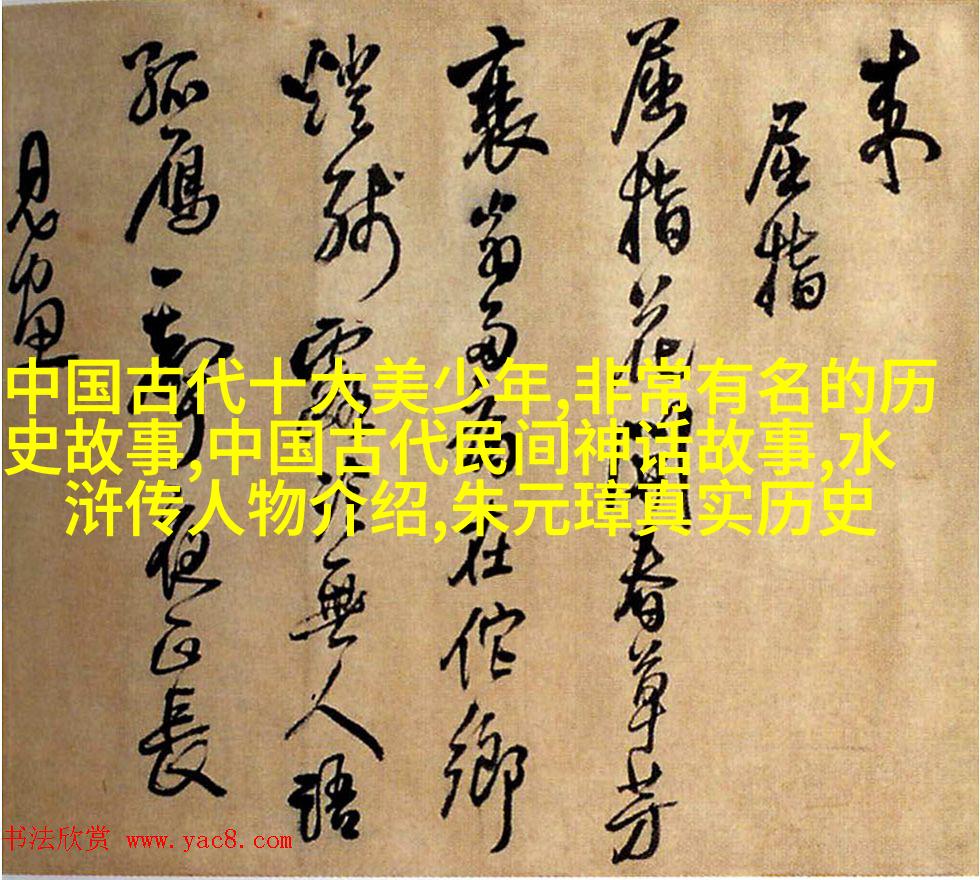 来
屈指
屈指花開春草芳
衰翁多病在佗鄉
燈殘露冷無人語
孤鴈一聲夜正長
中国古代十大美少年,非常有名的历
史故事,中国古代民间神话故事,水
浒传人物介绍,朱元璋真实历史
书法欣赏 www.yac8.com